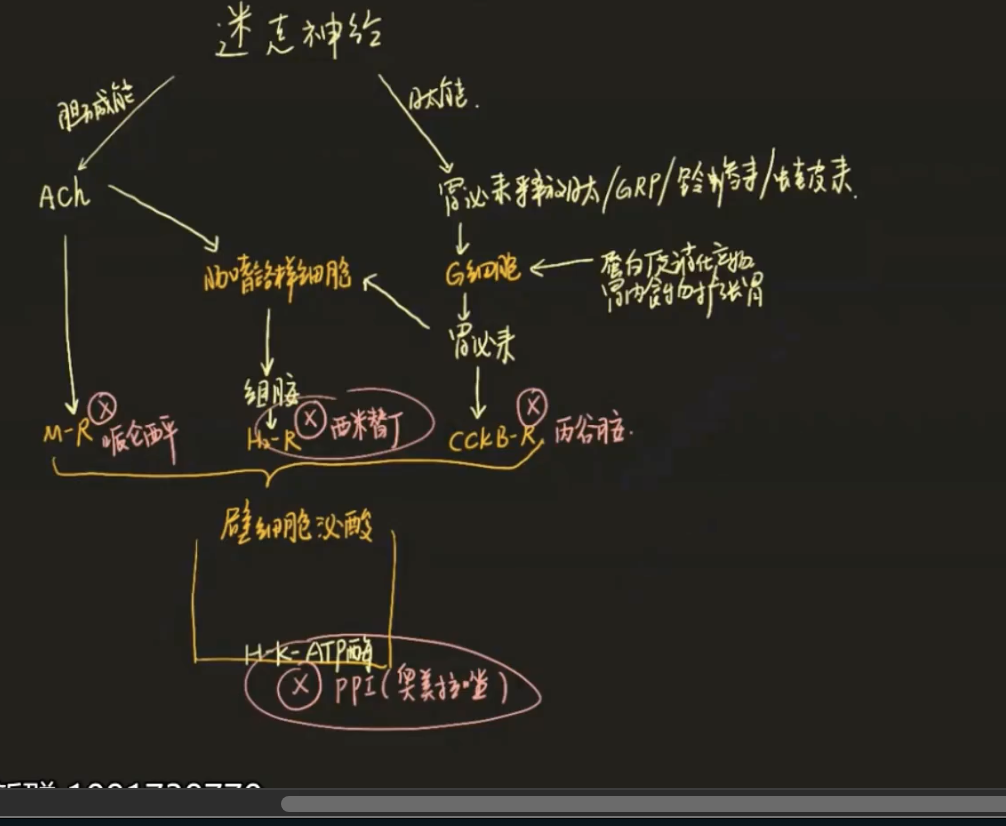 迷走神经
胆碱能
肽能.
ACh
胃泌素释放肽/GRP/铃蟾素/蛙皮素.
肠嗜铬样细胞
G细胞
蛋白质消化产物
胃内食物扩张胃
胃泌素
组胺
M-R ⓧ 哌仑西平
H₂-R ⓧ 西米替丁
CCKB-R ⓧ 丙谷胺.
壁细胞泌酸
H-K-ATP酶
ⓧ PPI(奥美拉唑)